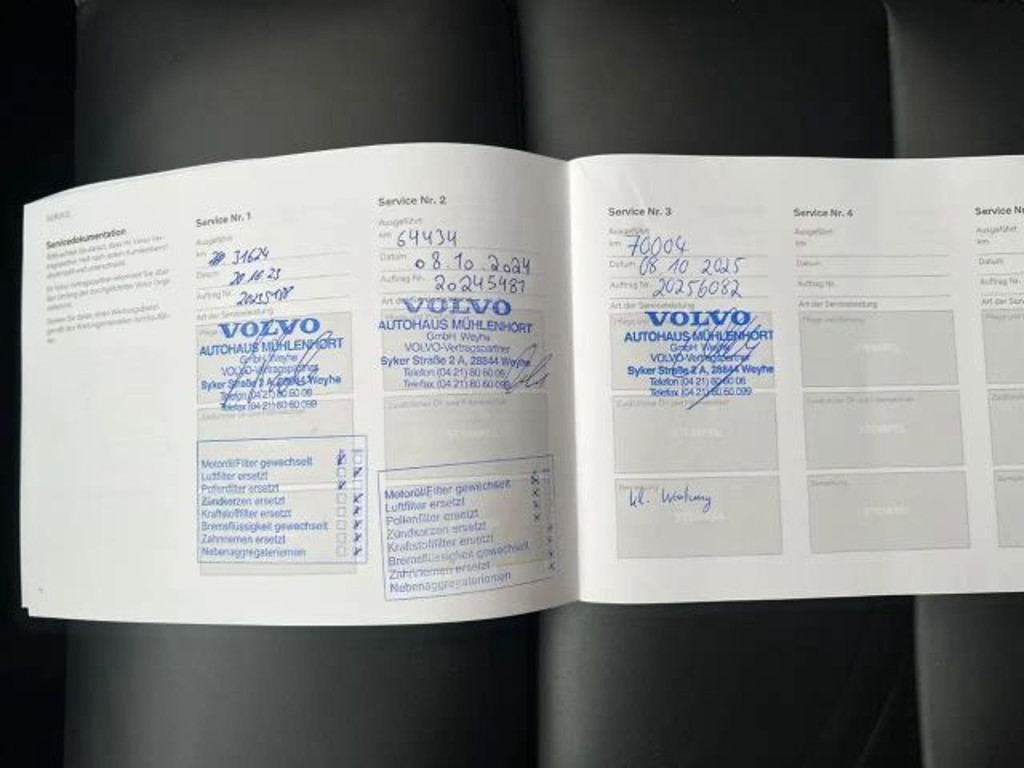 SERVICE
Servicedokumentation
Service Nr. 1
Ausgeführt
km 31624
Datum
20.10.23
Auftrag Nr.
Art der Serviceleistung
VOLVO
AUTOHAUS MÜHLENHORT
GmbH Weyhe
VOLVO-Vertragspartner
Syker Straße 2 A, 28844 Weyhe
Telefon (04 21) 80 60 06
Telefax (04 21) 80 60 099
Motoröl/Filter gewechselt
Luftfilter ersetzt
Pollenfilter ersetzt
Zündkerzen ersetzt
Kraftstofffilter ersetzt
Bremsflüssigkeit gewechselt
Zahnriemen ersetzt
Nebenaggregateriemen
Service Nr. 2
Ausgeführt
km 64434
Datum 08.10.2024
Auftrag Nr. 20245481
VOLVO
AUTOHAUS MÜHLENHORT
GmbH Weyhe
VOLVO-Vertragspartner
Syker Straße 2 A, 28844 Weyhe
Telefon (04 21) 80 60 06
Telefax (04 21) 80 60 099
Zusätzlicher Öl- und Filterwechsel
Motoröl/Filter gewechselt
Luftfilter ersetzt
Pollenfilter ersetzt
Zündkerzen ersetzt
Kraftstofffilter ersetzt
Bremsflüssigkeit gewechselt
Zahnriemen ersetzt
Nebenaggregateriemen
Service Nr. 3
Ausgeführt
km 70004
Datum 08.10 2025
Auftrag Nr. 20256082
Art der Serviceleistung
VOLVO
AUTOHAUS MÜHLENHORT
GmbH Weyhe
VOLVO-Vertragspartner
Syker Straße 2 A, 28844 Weyhe
Telefon (04 21) 80 60 06
Telefax (04 21) 80 60 099
STEMPEL
Bemerkung
kl. Wartung
STEMPEL
Service Nr. 4
Ausgeführt
km
Datum
Auftrag Nr.
Art der Serviceleistung
STEMPEL
Zusätzlicher Öl- und Filterwechsel
STEMPEL
Bemerkung
STEMPEL
Service Nr
Ausgeführt
km
Datum
Auftrag Nr.
Art der Serv